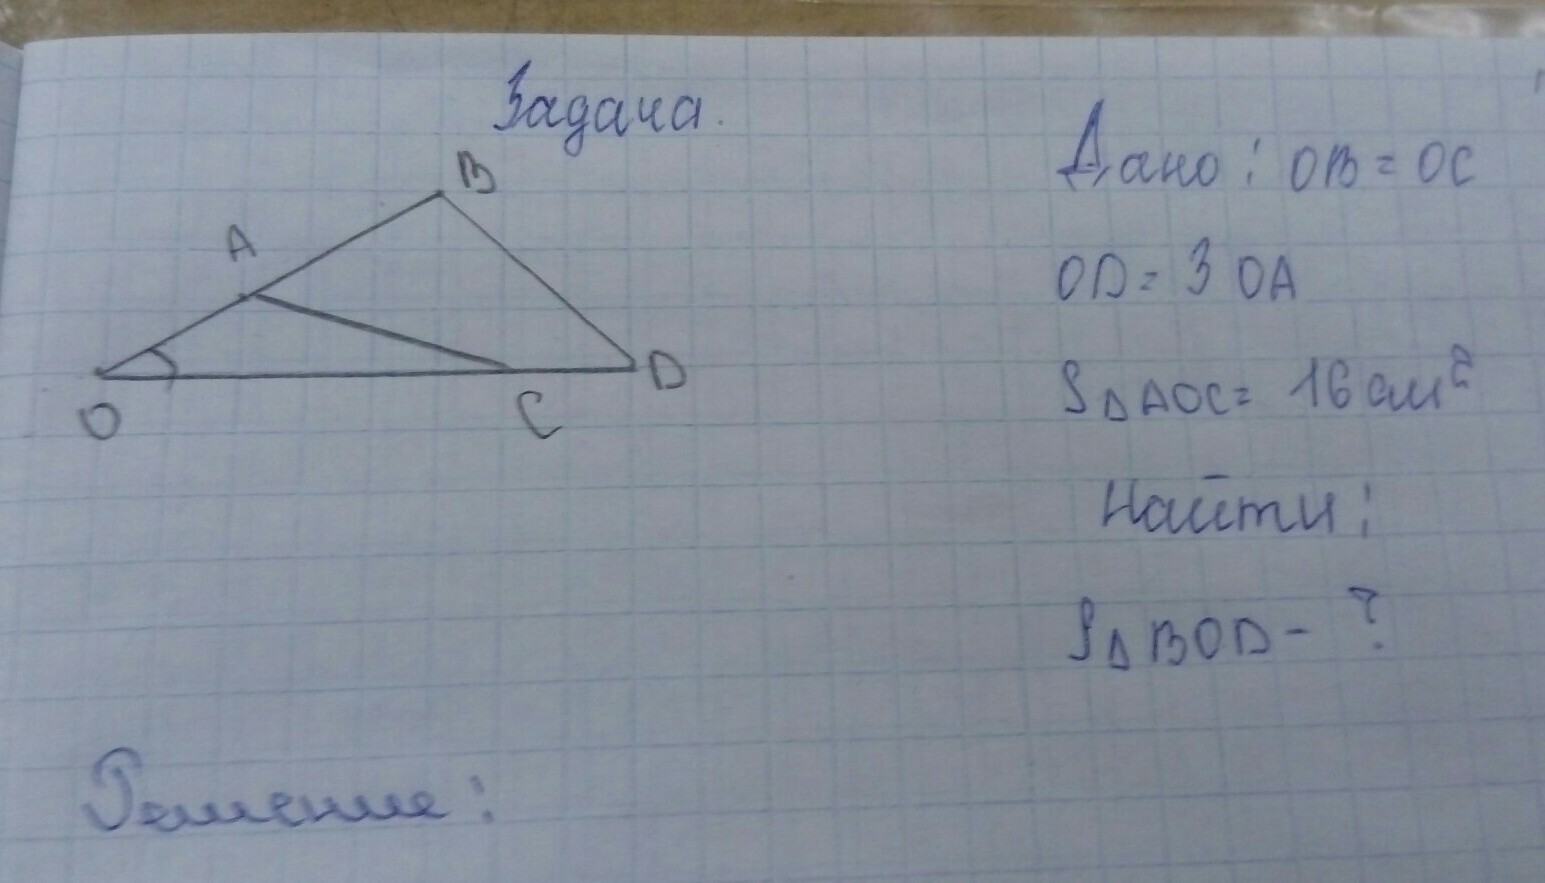 Задача.
B
A
O
C
D
Дано: OB = OC
OD = 3 OA
S△AOC = 16 см²
Найти:
S△BOD - ?
Решение: